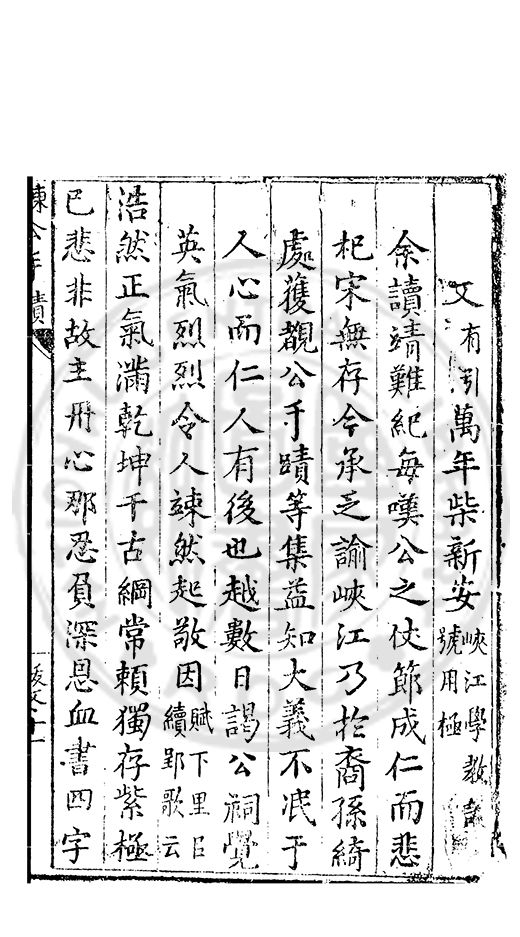 又有引萬年柴新安峽江學教諭號用極
余讀靖難紀每嘆公之伏節成仁而悲
杞宋無存今承乏諭峽江乃扵裔孫綺
處獲觀公手蹟等集益知大義不泯于
人心而仁人有後也越數日謁公祠覺
英氣烈烈令人竦然起敬因賦下里曰續郢歌云
浩然正氣滿乾坤千古綱常賴獨存紫極
已悲非故主丹心那忍負深恩血書四字